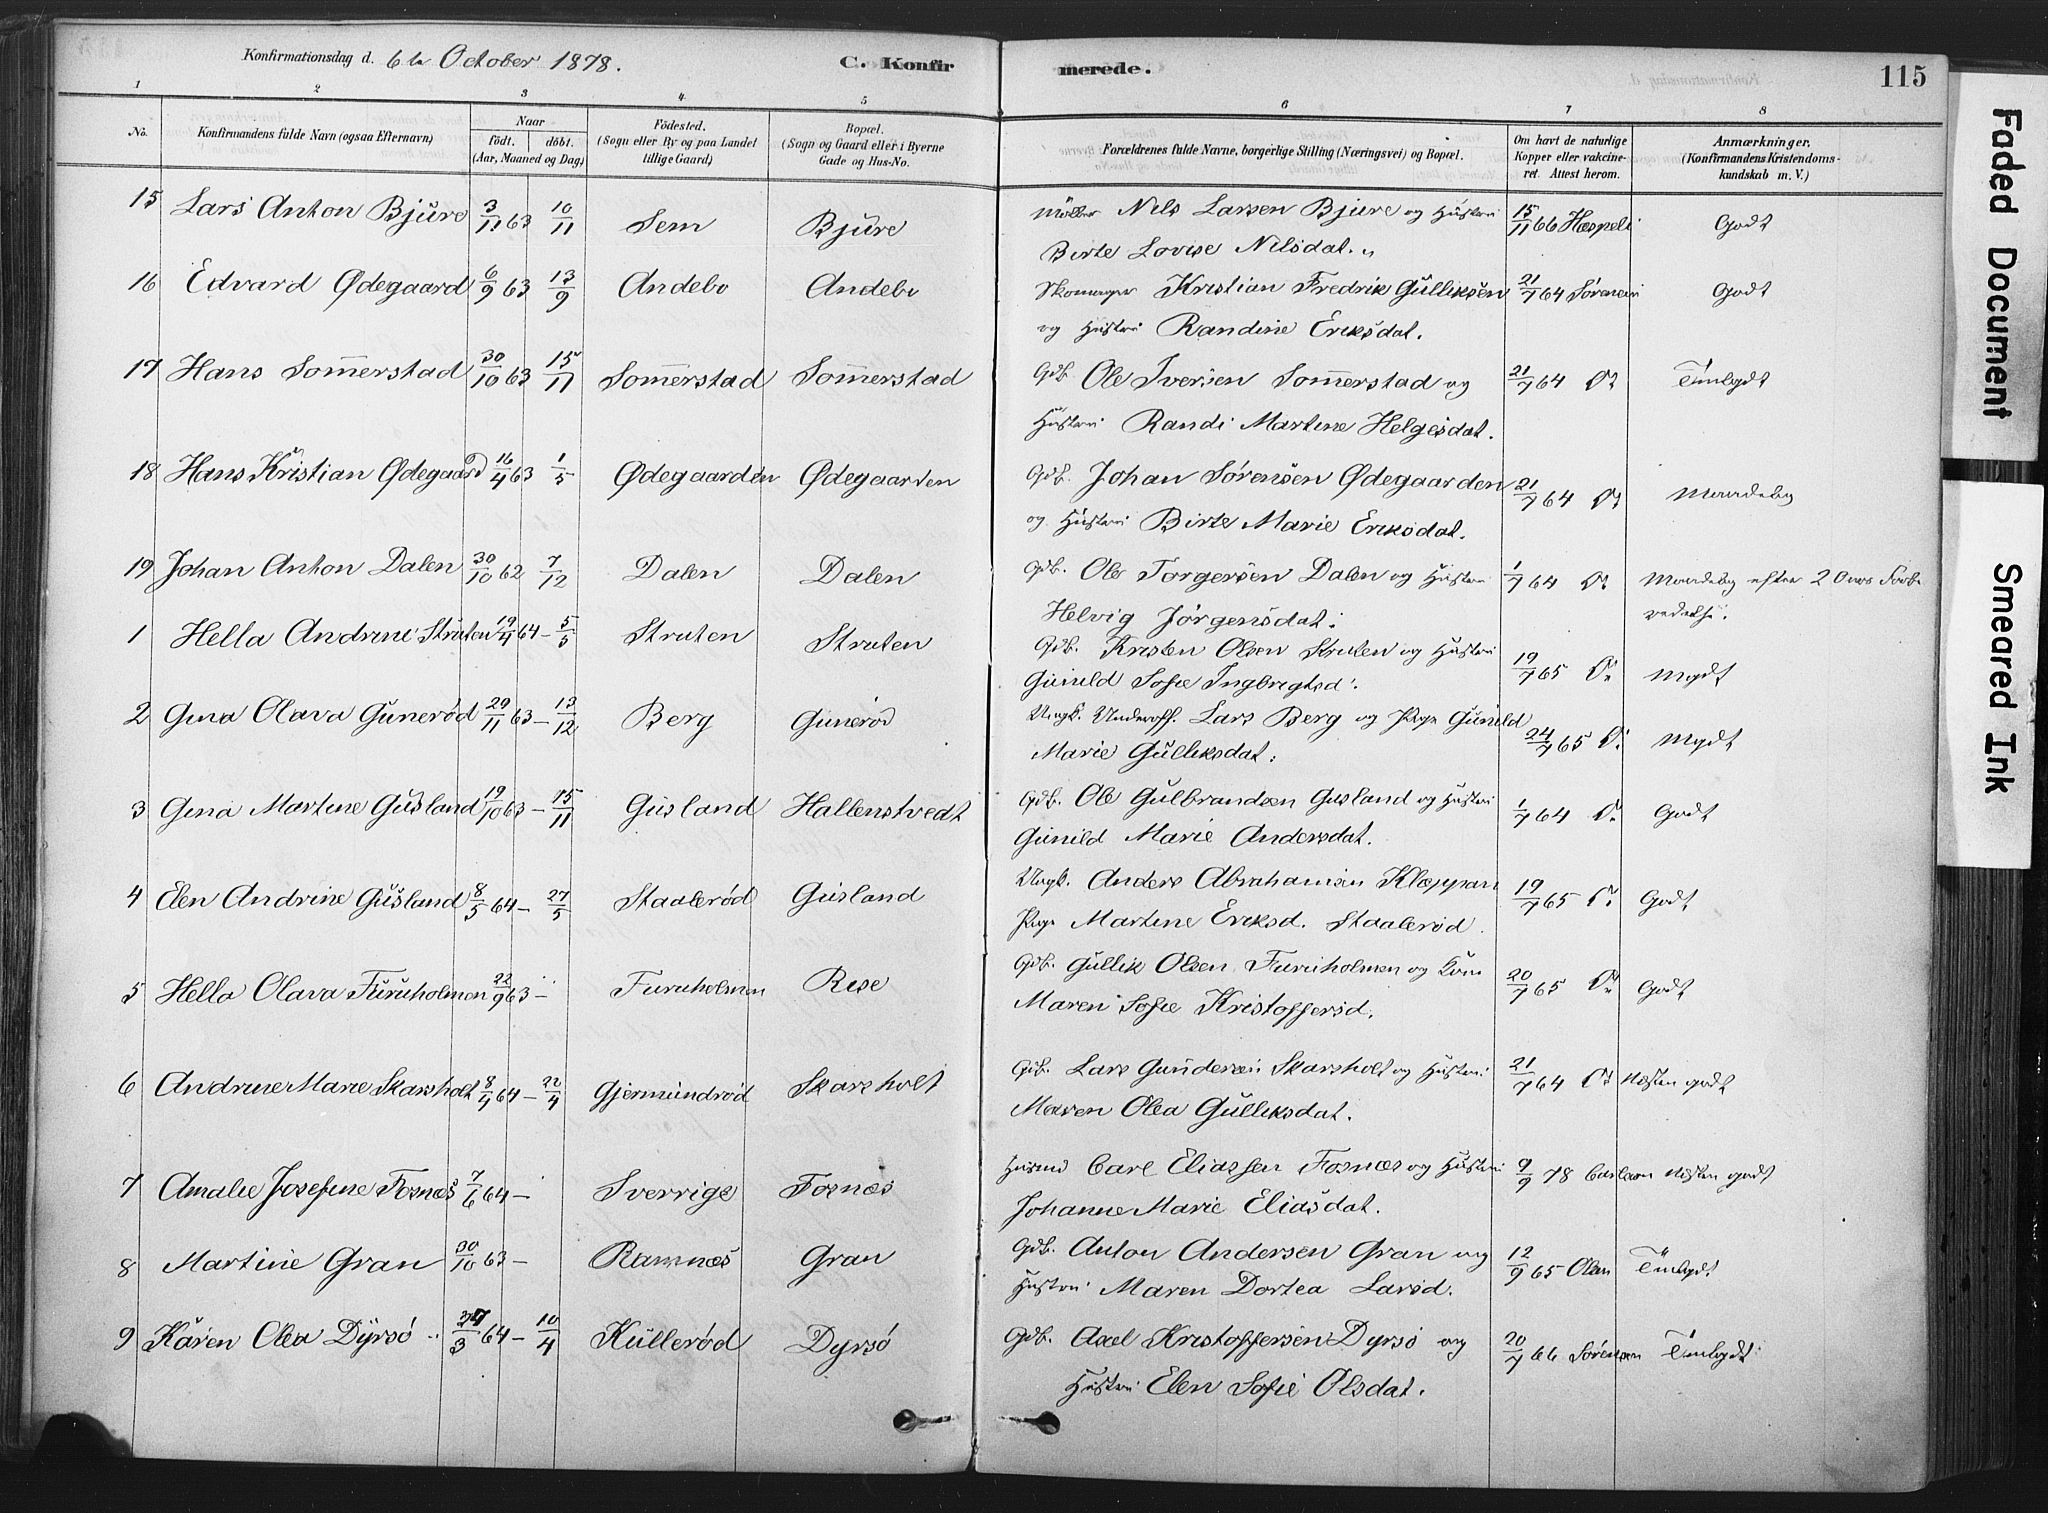 Konfirmationsdag d. 6te October 1878.
C. Konfirmerede.
115
1 2 3 4 5 6 7 8
No.
Konfirmandens fulde Navn (ogsaa Efternavn)
Naar
födt. döbt.
(Aar, Maaned og Dag)
Födested.
(Sogn eller By og paa Landet
tillige Gaard)
Bopæl.
(Sogn og Gaard eller i Byerne
Gade og Hus-No.
Forældrenes fulde Navne, borgerlige Stilling (Næringsvei) og Bopæl.
Om havt de naturlige
Kopper eller vakcine-
ret. Attest herom.
Anmærkninger.
(Konfirmandens Kristendoms-
kundskab m. V.)
15 Lars Anton Bjure 3/11 63 10/11 Sem Bjure Möller Nils Larsen Bjure og Hustru 15/11 66 Godt
Birte Lovise Nilsdat.
16 Edvard Ødegaard 6/9 63 13/9 Andebo Andebo Skomager Kristian Fredrik Gulliksen 21/7 64 Sörensen Godt
og Hustru Randine Eriksdat.
17 Hans Sommerstad 30/10 63 15/11 Sommerstad Sommerstad Gdb. Ole Iversen Sommerstad og 21/7 64 Do Temlgdt
Hustru Randi Martine Helgesdat.
18 Hans Kristian Ødegaard 16/4 63 1/5 Ødegaarden Ødegaarden Gdb. Johan Sørensen Ødegaarden 21/7 64 Do Maadelig
og Hustru Birte Marie Eriksdat.
19 Johan Anton Dalen 30/10 62 7/12 Dalen Dalen Gdb. Ole Torgersen Dalen og Hustru 1/7 64 Do Maadelig efter 2 Aars Forbe
Helvig Jörgensdat. redelse.
1 Hella Andrine Struten 19/4 64 – 5/5 Struten Struten Gdb. Kristen Olsen Struten og Hustru 19/7 65 Do Mgdt
Gunild Sofie Ingbrigtsd.
2 Gina Olava Gunerød 29/11 63 – 13/12 Berg Gunerød Ungk. Underoff. Lars Berg og Pige Gunild 24/7 65 Do Mgdt
Marie Gulliksdat.
3 Gina Martine Gusland 19/10 63 – 15/11 Gusland Hallenstvedt Gdb. Ole Gulbrandsen Gusland og Hustru 1/7 64 Do Godt
Gunild Marie Andersdat.
4 Elen Andrine Gusland 8/5 64 – 27/5 Staalerød Gusland Ungk. Anders Abrahamsen Kleppan 19/7 65 Do Godt
Pige Martine Eriksd. Staalerød.
5 Hella Olava Furuholmen 22/9 63 – Furuholmen Rese Gdb. Gullik Olsen Furuholmen og Kone 20/7 65 Do Godt
Maren Sofie Kristoffersd.
6 Andrine Marie Skarsholt 8/4 64 – 22/4 Gjermundrød Skarsholt Gdb. Lars Gundersen Skarsholt og Hustru 21/7 64 Do Næsten godt
Maren Olea Gulliksdat.
7 Amalie Josefine Fosnæs 7/6 64 – Sverrige Fosnæs Husmd Carl Eliassen Fosnæs og Hustru 9/9 78 Carlsen Næsten godt
Johanne Marie Eliasdat.
8 Martine Gran 30/10 63 – Ramnæs Gran Gdb. Anton Andersen Gran og 12/9 65 Olsen Temlgdt
Hustru Maren Dortea Larsd.
9 Karen Olea Dyrsø 24/3 64 – 10/4 Kullerød Dyrsø Gdb. Axel Kristoffersen Dyrsø og 20/7 66 Sørensen Temlgdt
Hustru Elen Sofie Olsdat.
Faded Document
Smeared Ink